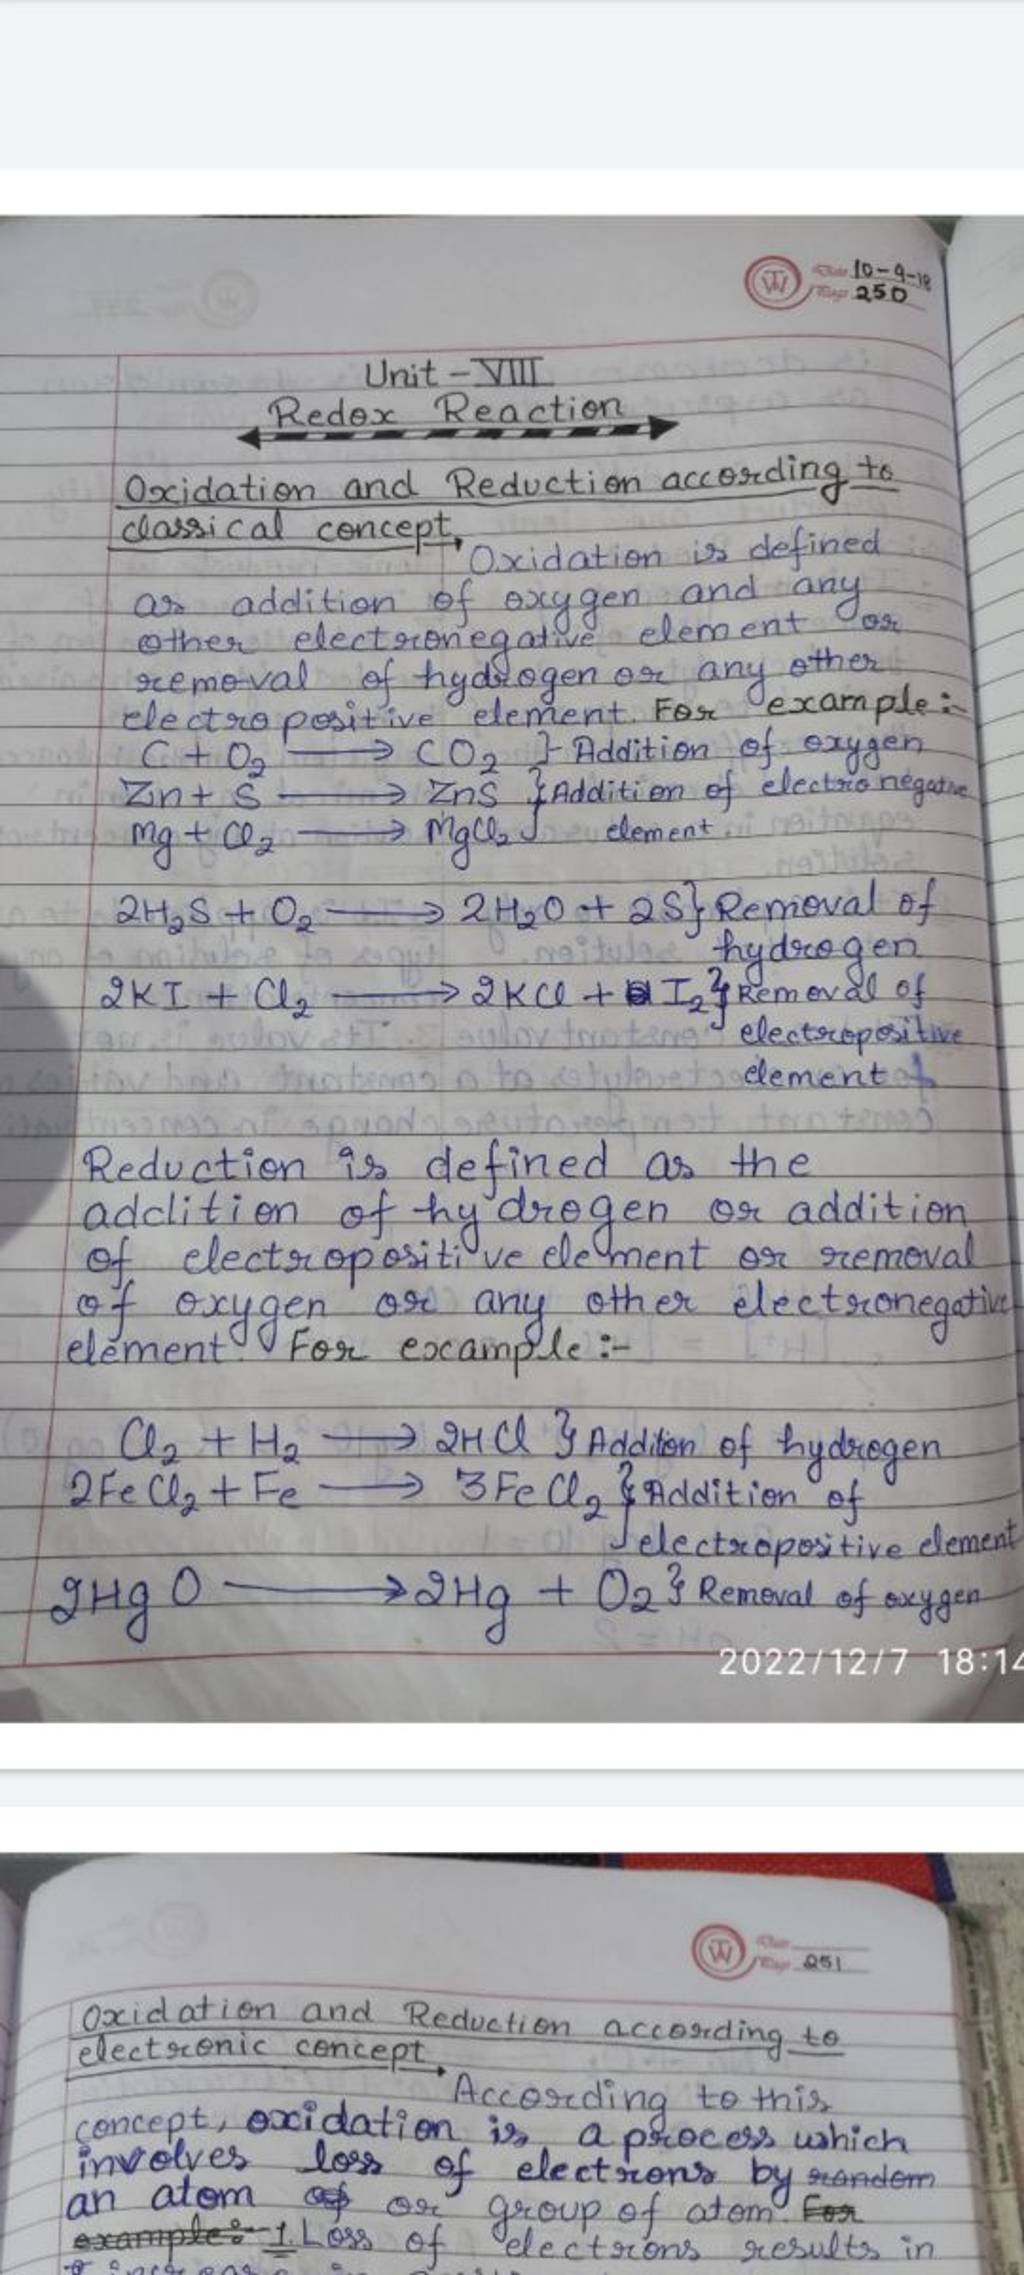 Date 10-9-18
Page 250
Unit - VIII
Redox Reaction
Oxidation and Reduction according to
classical concept,
Oxidation is defined
as addition of oxygen and any
other electronegative element or
removal of hydrogen or any other
electropositive element. For example :-
C + O₂ ⟶ CO₂ } Addition of oxygen
Zn + S ⟶ ZnS } Addition of electronegative
Mg + Cl₂ ⟶ MgCl₂ element
2H₂S + O₂ ⟶ 2H₂O + 2S } Removal of
hydrogen
2KI + Cl₂ ⟶ 2KCl + I₂ } Removal of
electropositive
element
Reduction is defined as the
addition of hydrogen or addition
of electropositive element or removal
of oxygen or any other electronegative
element. For example :-
Cl₂ + H₂ ⟶ 2HCl } Additon of hydrogen
2FeCl₂ + Fe ⟶ 3FeCl₂ } Addition of
electropositive element
2HgO ⟶ 2Hg + O₂ } Removal of oxygen
2022/12/7 18:14
Date
Page 251
Oxidation and Reduction according to
electronic concept,
According to this
concept, oxidation is a process which
involves loss of electrons by random
an atom or group of atom. For
example :- 1. Loss of electrons results in